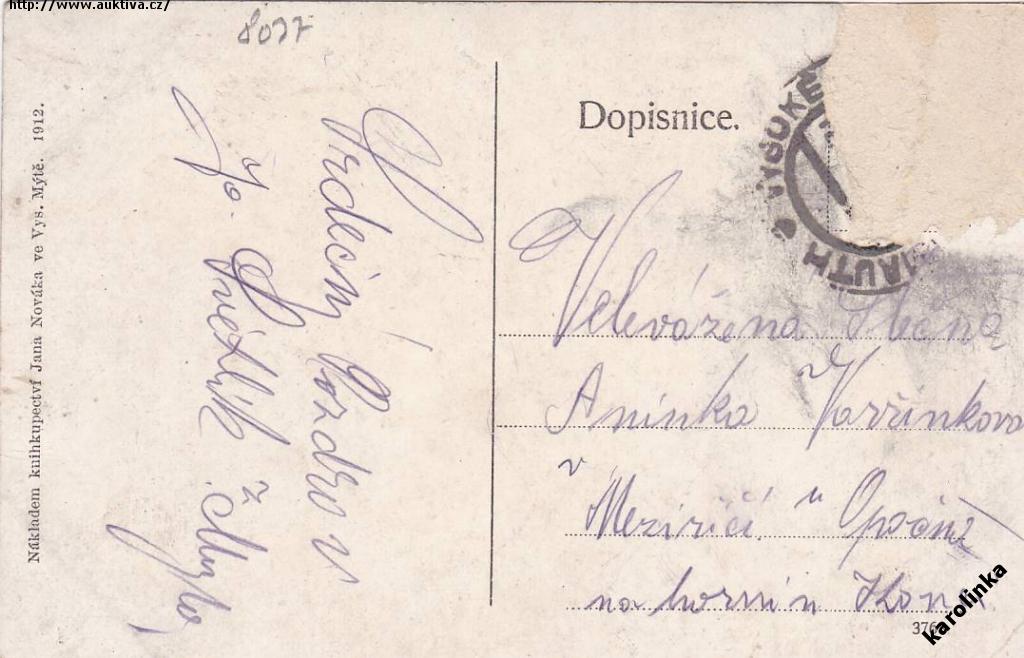 http://www.auktiva.cz/
8037
Nákladem knihkupectví Jana Nováka ve Vys. Mýtě. 1912.
Srdečný Pozdrav
Jo. Svědlík z Mýta
Dopisnice.
VYSOKÉ MAUTH
Velevážená Slečna
Aninka
v Meziříčí u Opočna
na horním Konci
376
karolinka